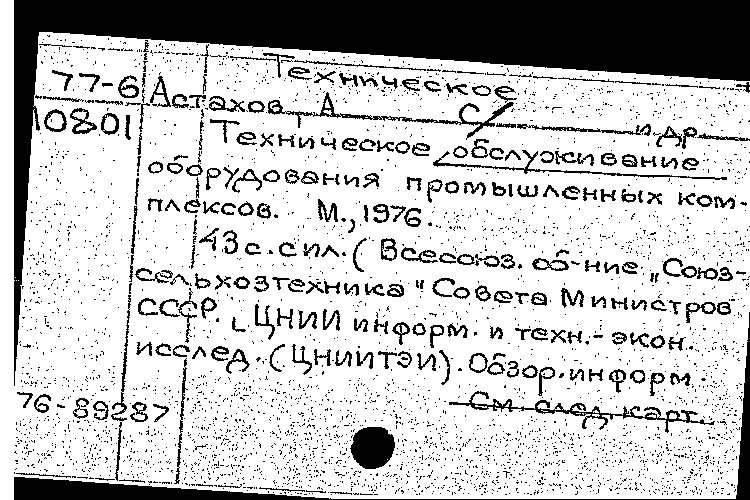 Техническое
77-6 Астахов, А С и др.
10801 Техническое обслуживание
оборудования промышленных ком-
плексов. М., 1976.
43 с. с ил. ( Всесоюз. об-ние „Союз-
сельхозтехника" Совета Министров
СССР. ЦНИИ информ. и техн.-экон.
исслед. (ЦНИИТЭИ). Обзор.информ.
См. след. карт.
76-89287